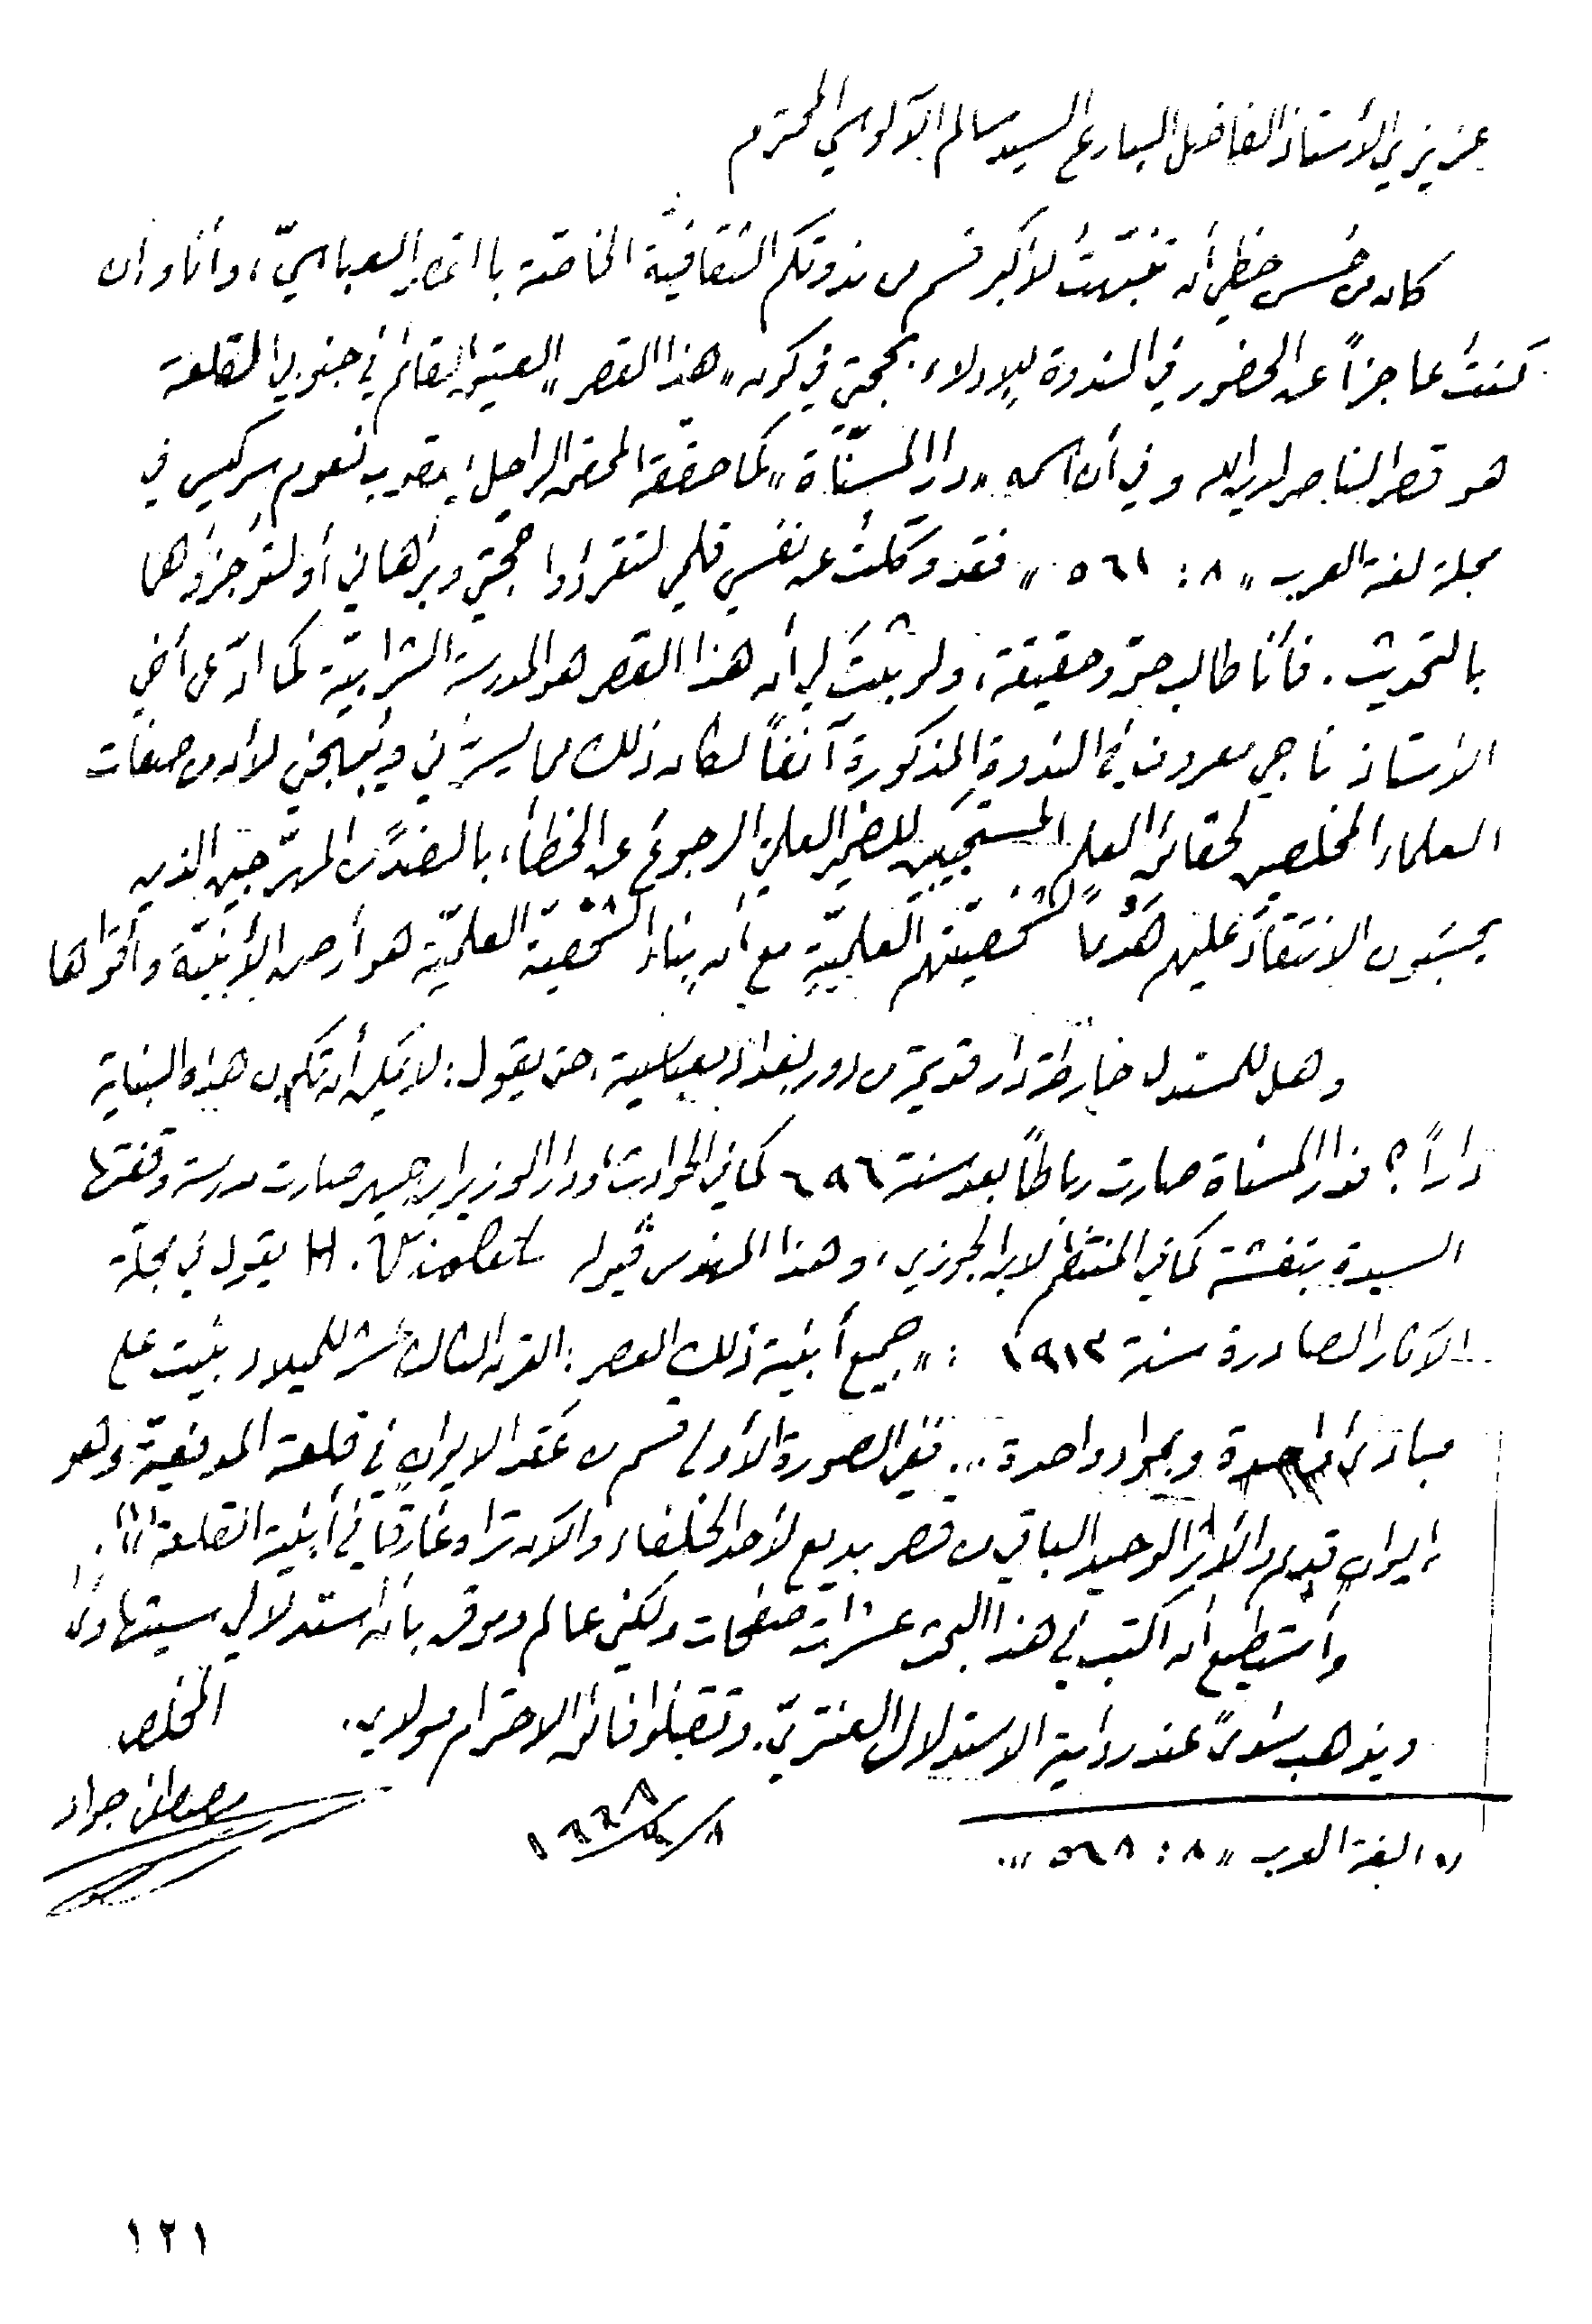 عزيزي الأستاذ الفاضل البارع السيد سالم الآلوسي المحترم
كان من حُسن حظي أن تنبّهتُ لأكبر قسم من ندوتكم الثقافية الخاصة بالقصر العباسيّ، وأنا وإن
كنتُ عاجزاً عن الحضور في الندوة للإدلاء بحججي في كون «هذا القصر» العتيق القائم في جنوبي القلعة
هو قصر الناصر لدين الله وفي أن اسمه «دار المسنّاة» كما حققه المحقق الراحل يعقوب نعوم سركيس في
مجلة لغة العرب «٨: ٥٦١» فقد وكلتُ عن نفسي قلمي لتقرأوا حججي وبرهاني أو لتوجزوهما
بالتحديث. فأنا طالب حق وحقيقة، ولو ثبتَ لي أن هذا القصر هو المدرسة الشرابيّة كما ادّعى أخي
الأستاذ ناجي معروف في الندوة المذكورة آنفاً لكان ذلك مما يسرّني ويُبهجني لأن من صفات
العلماء المخلصين لحقائق العلم المستجيبين للضمير العلمي الرجوعَ عن الخطأ، بالضدّ من المهرّجين الذين
يحسَبون الانتقادَ عليهم هَدْماً لشخصيتهم العلميّة مع أن بناء الشخصية العلميّة هو أرصن الأبنيّة وأقواها
وهل للمستدل خارطة دار قديمة من دور بغداد العباسية، حتى يقول: لا يمكن أن تكون هذه البناية
داراً؟ فدار المسناة صارت رباطاً بعد سنة ٦٩٦ كما في الحوادث ودار الوزير ابن جهير صارت مدرسة وقفتها
السيدة بنفشة كما في المنتظم لابن الجوزي، وهذا المهندس ڤيوله H. Viollet يقول في مجلة
الآثار الصادرة سنة ١٩١٣: «جميع أبنية ذلك العصر: القرن الثالث عشر للميلاد بنيت على
مبادئ واحدة وبمواد واحدة... ففي الصورة الأولى قسم من عقد الايوان في قلعة المدفعيّة وهو
ايوان قديم والأثر الوحيد الباقي من قصر بديع لأحد الخلفاء والآن تراه غارقاً في أبنية القلعة»(١).
وأستطيع أن أكتب في هذا البحث عشرات صفحات ولكني عالم وموقن بأن استدلالي سيتهاوى
ويذهب سُدىً عند رداءة الاستدلال العنتريّ. وتقبلوا فائق الاحترام مولاي.
المخلص
مصطفى جواد
٨/٠/١٩٦٨
(١) لغة العرب «٨: ٥٦٨».
١٢١